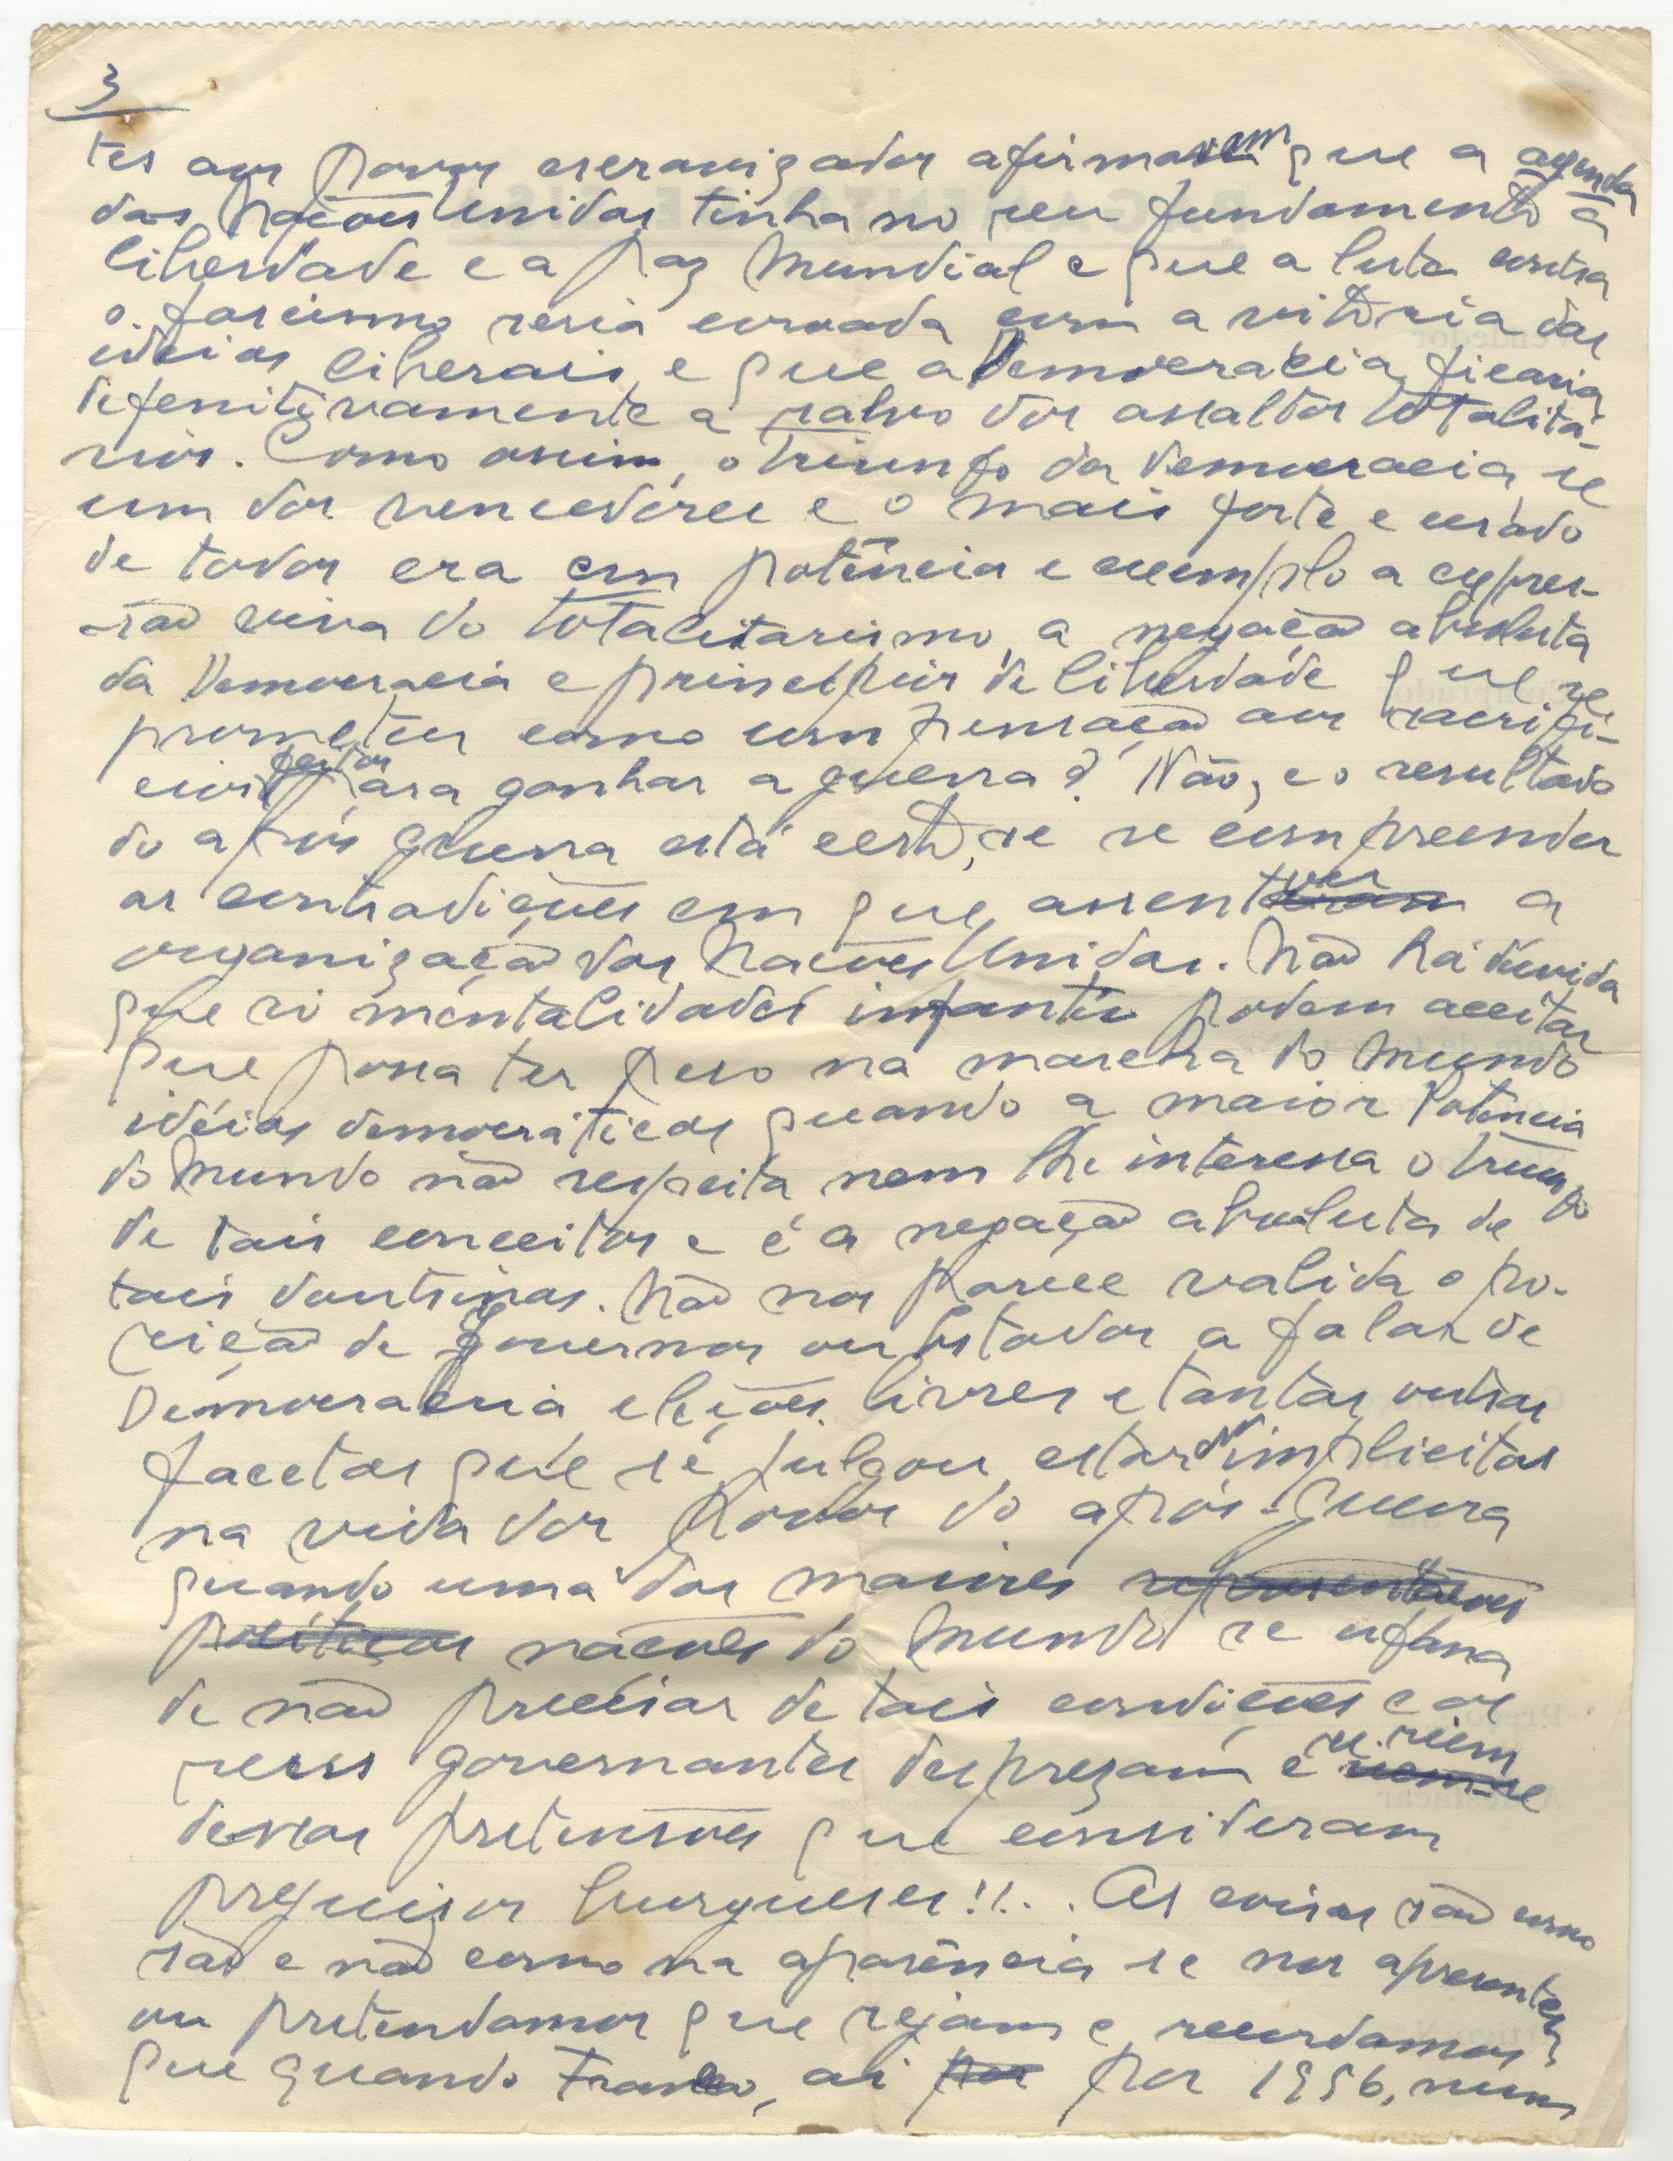 3
tes aos povos escravizados afirmavam que a agenda
das Nações Unidas tinha no seu fundamento a
liberdade e a paz Mundial e que a luta contra
o fascismo seria coroada com a vitória das
idéias liberais, e que a Democracia ficaria
defenitivamente a salvo dos assaltos totalitá-
rios. Como assim, o triunfo da democracia, se
um dos vencedores e o mais forte e
de todos era em potência e exemplo a expres-
são viva do totalitarismo, a negação absoluta
da Democracia e principios de liberdade que se
prometeu como compensação aos sacrifi-
cios feitos para ganhar a guerra? Não, e o resultado
do após guerra está certo, se se compreender
as contradições em que assentou a
organização das Nações Unidas. Não há dúvida
que só mentalidades infantis podem aceitar
que possa ter peso na marcha do mundo
idéias democráticas quando a maior Potência
do Mundo não respeita nem lhe interessa o triunfo
de tais conceitos e é a negação absoluta de
tais doutrinas. Não nos parece valida a po-
sição de governos ou Estados a falar de
Democracia eleições livres e tantas outras
facetas que se julgou estarem implicitas
na vida dos Povos do após-Guerra
quando uma das maiores representações
políticas nações do Mundo se ufana
de não precisar de tais condições e os
seus governantes desprezam e se riem
dessas pretensões que consideram
prejuizos burgueses!!... As coisas são como
são e não como na aparência se nos apresentem
ou pretendamos que sejam e, recordamos
que quando Franco, ai por por 1956, num